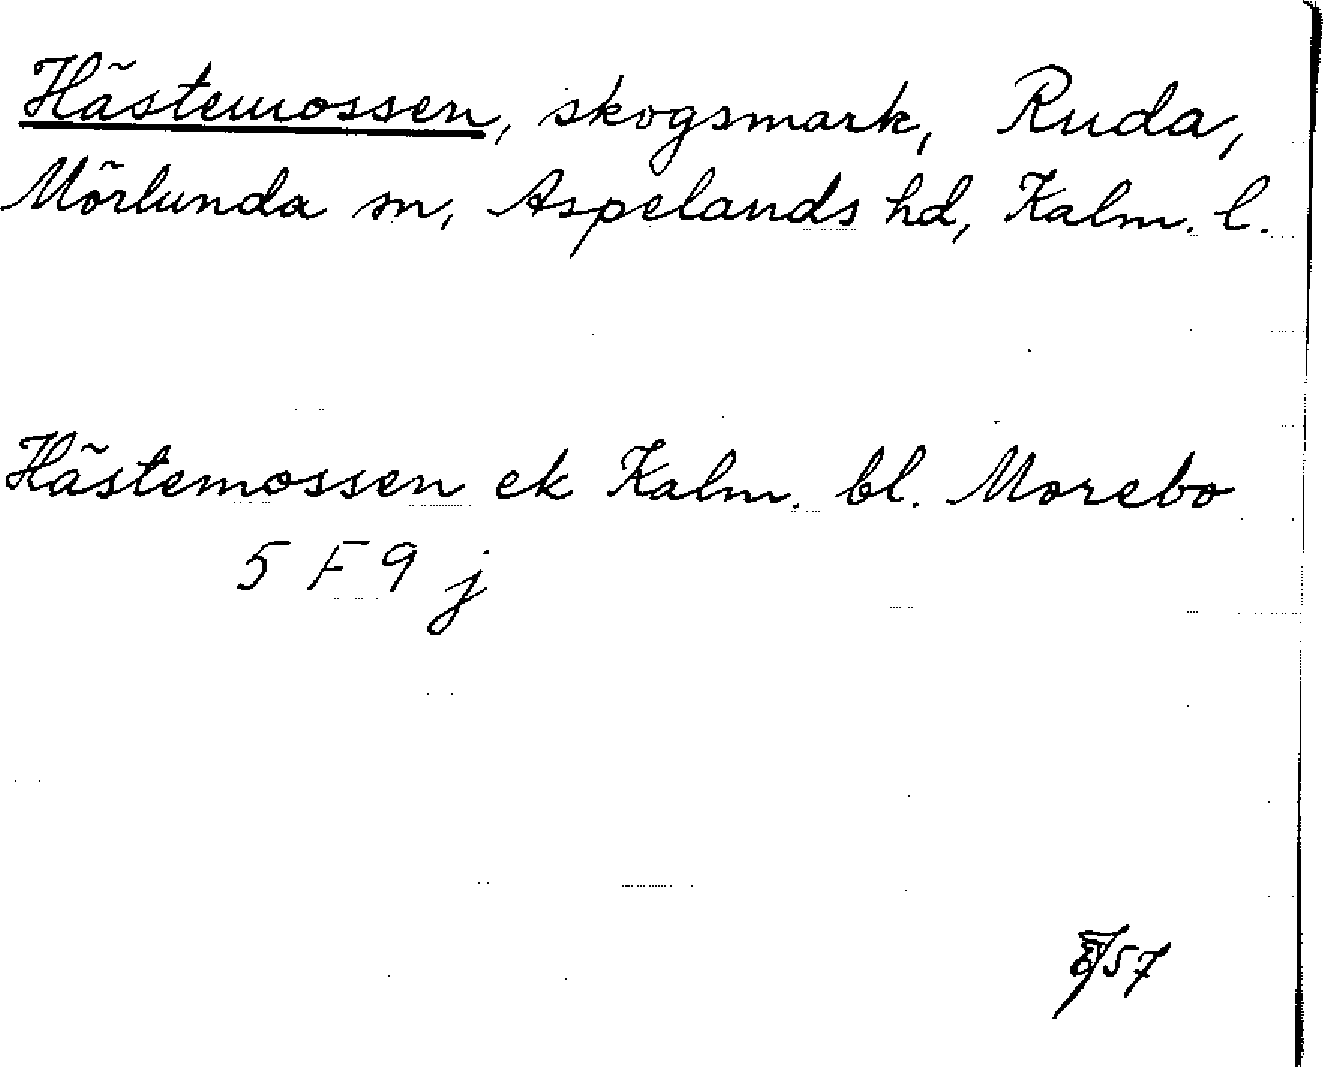 Hästemossen, skogsmark, Ruda,
Mörlunda sn, Aspelands hd, Kalm. l.
Hästemossen ek Kalm. bl. Morebo
5 F 9 j
57